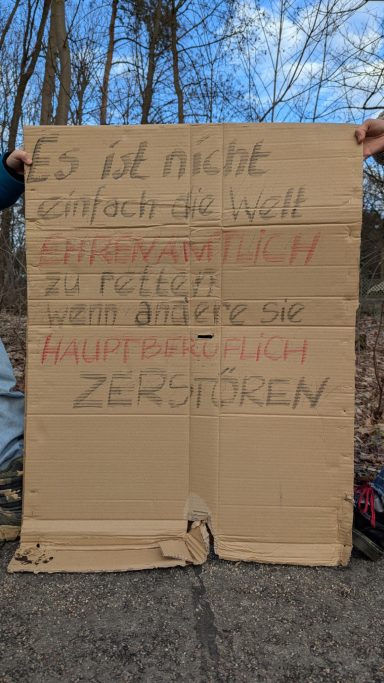 Es ist nicht
einfach die Welt
EHRENAMTLICH
zu retten
wenn andere sie
HAUPTBERUFLICH
ZERSTÖREN